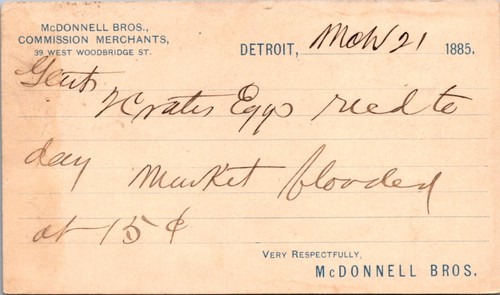 McDONNELL BROS.,
COMMISSION MERCHANTS,
39 WEST WOODBRIDGE ST.
DETROIT, Mch 21 1885.
Gents
2 Crates Eggs recd to
day Market flooded
at 15¢
VERY RESPECTFULLY,
McDONNELL BROS.